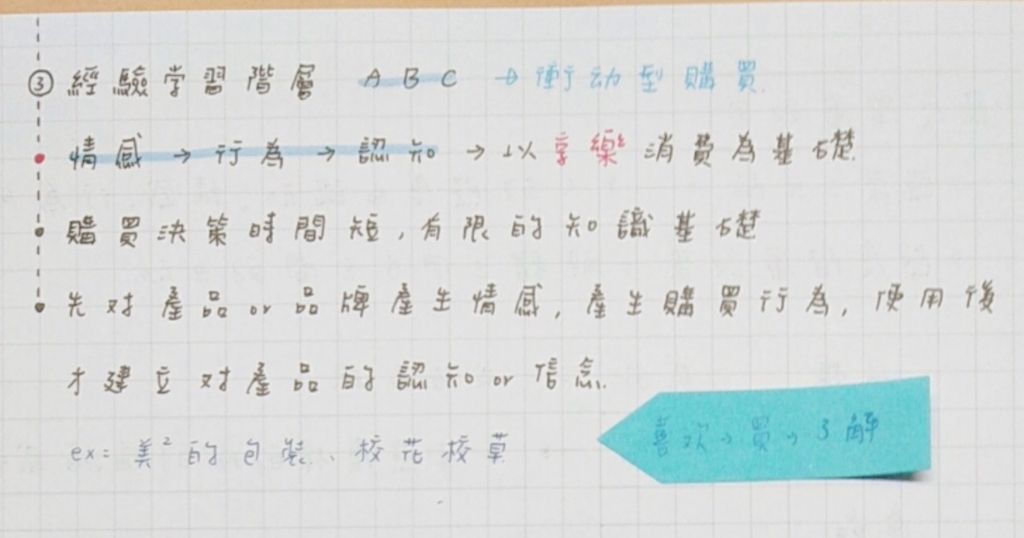 ③ 經驗学習階層 A B C → 衝动型購買.
• 情感 → 行為 → 認知 → 以享樂消費為基礎.
• 購買決策時間短,有限的知識基礎
• 先对產品or品牌產生情感,產生購買行為,使用後
才建立对產品的認知or信念.
ex: 美²的包裝、校花校草
喜欢→買→了解